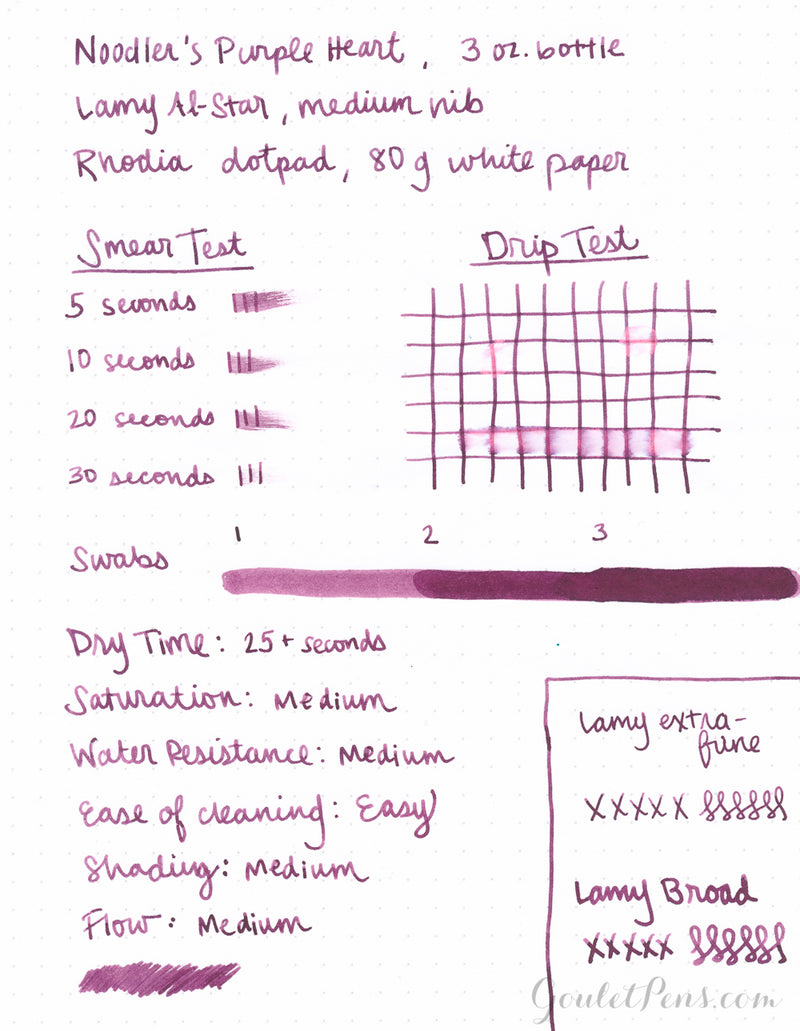 Noodler's Purple Heart, 3 oz. bottle
Lamy Al-Star, medium nib
Rhodia dotpad, 80g white paper
Smear Test
5 seconds
10 seconds
20 seconds
30 seconds
Drip Test
Swabs
1 2 3
Dry Time: 25+ seconds
Saturation: Medium
Water Resistance: Medium
Ease of cleaning: Easy
Shading: Medium
Flow: Medium
Lamy extra-
fine
XXXXX
Lamy Broad
XXXXX
GouletPens.com